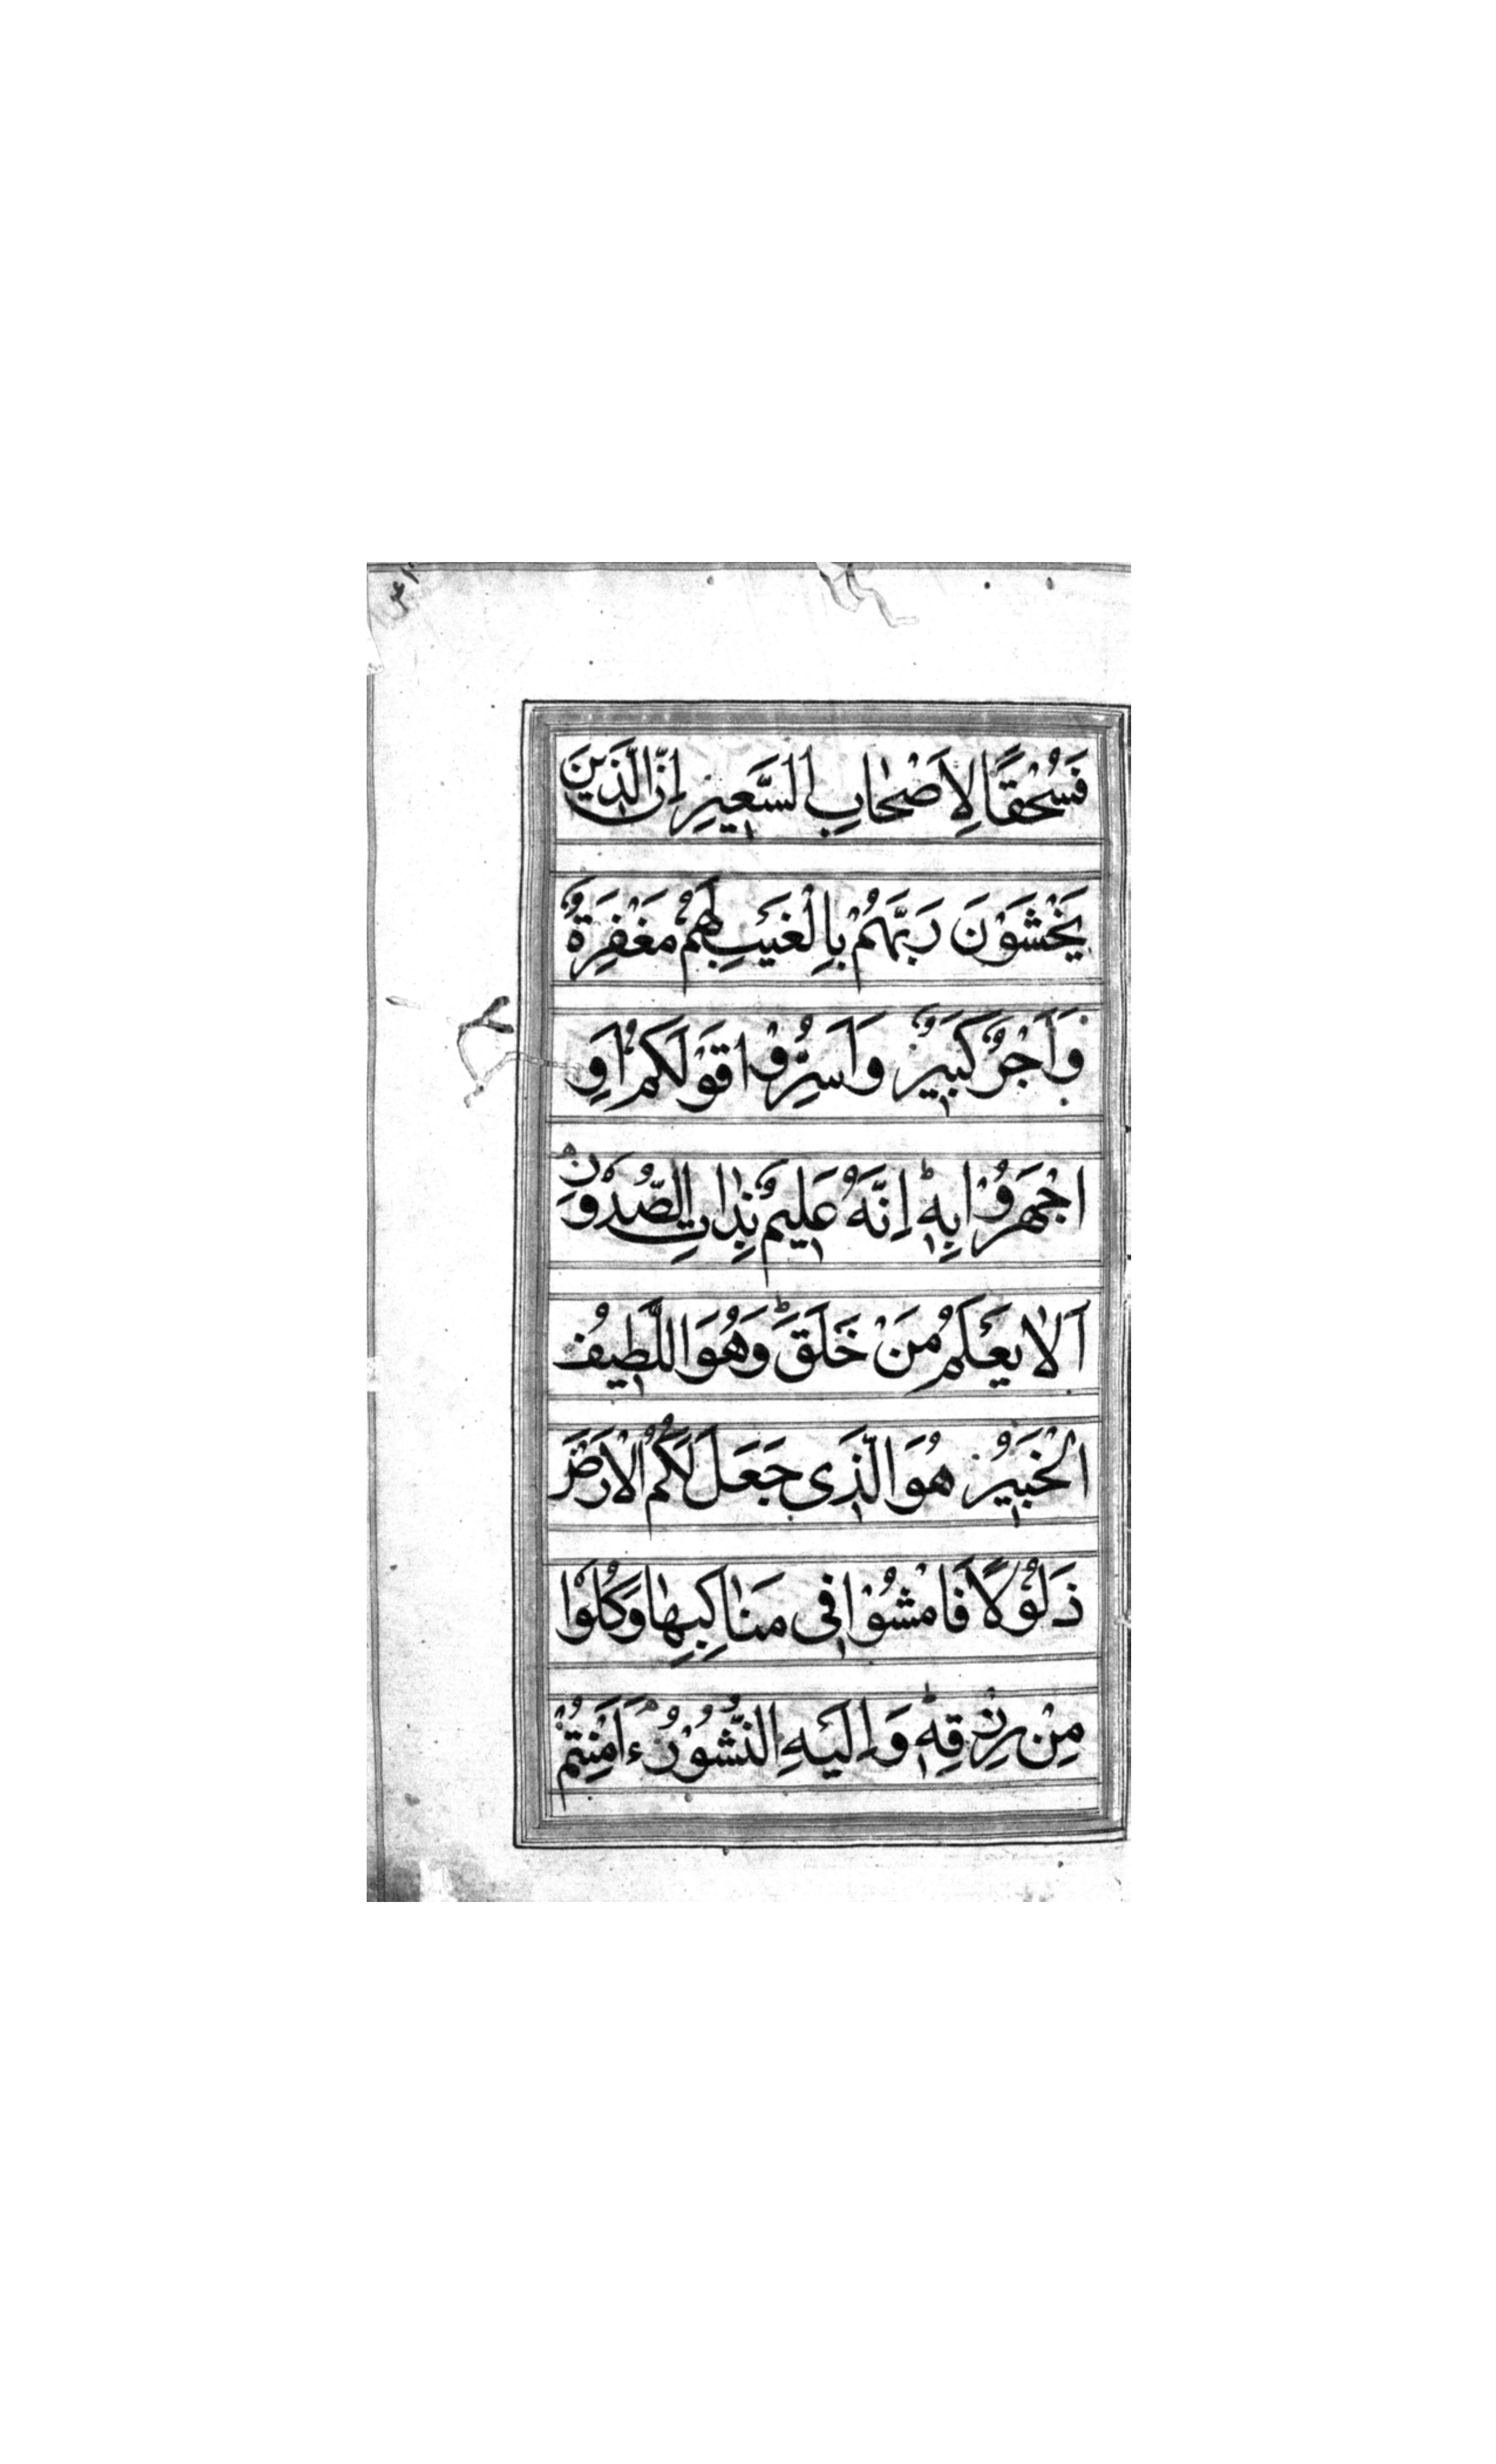 فَسُحْقًا لِاَصْحَابِ السَّعِيرِ اِنَّ الَّذِينَ
يَخْشَوْنَ رَبَّهُمْ بِالْغَيْبِ لَهُمْ مَغْفِرَةٌ
وَاَجْرٌ كَبِيرٌ وَاَسِرُّوا قَوْلَكُمْ اَوِ
اجْهَرُوْا بِهٖ ط اِنَّهٗ عَلِيمٌ بِذَاتِ الصُّدُوْرِ
اَلَا يَعْلَمُ مَنْ خَلَقَ ط وَهُوَ اللَّطِيفُ
الْخَبِيرُ هُوَ الَّذِى جَعَلَ لَكُمُ الْاَرْضَ
ذَلُوْلًا فَامْشُوْا فِى مَنَاكِبِهَا وَكُلُوْا
مِنْ رِزْقِهٖ ط وَاِلَيْهِ النُّشُوْرُ ءَاَمِنْتُمْ